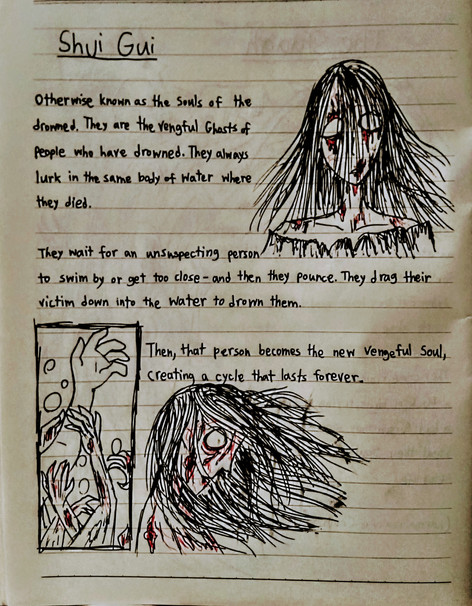 Shui Gui
Otherwise known as the Souls of the
drowned. They are the vengful Ghosts of
People who have drowned. They always
lurk in the same body of water where
they died.
They wait for an unsuspecting person
to swim by or get too close - and then they pounce. They drag their
victim down into the water to drown them.
Then, that person becomes the new vengeful soul,
creating a cycle that lasts forever.